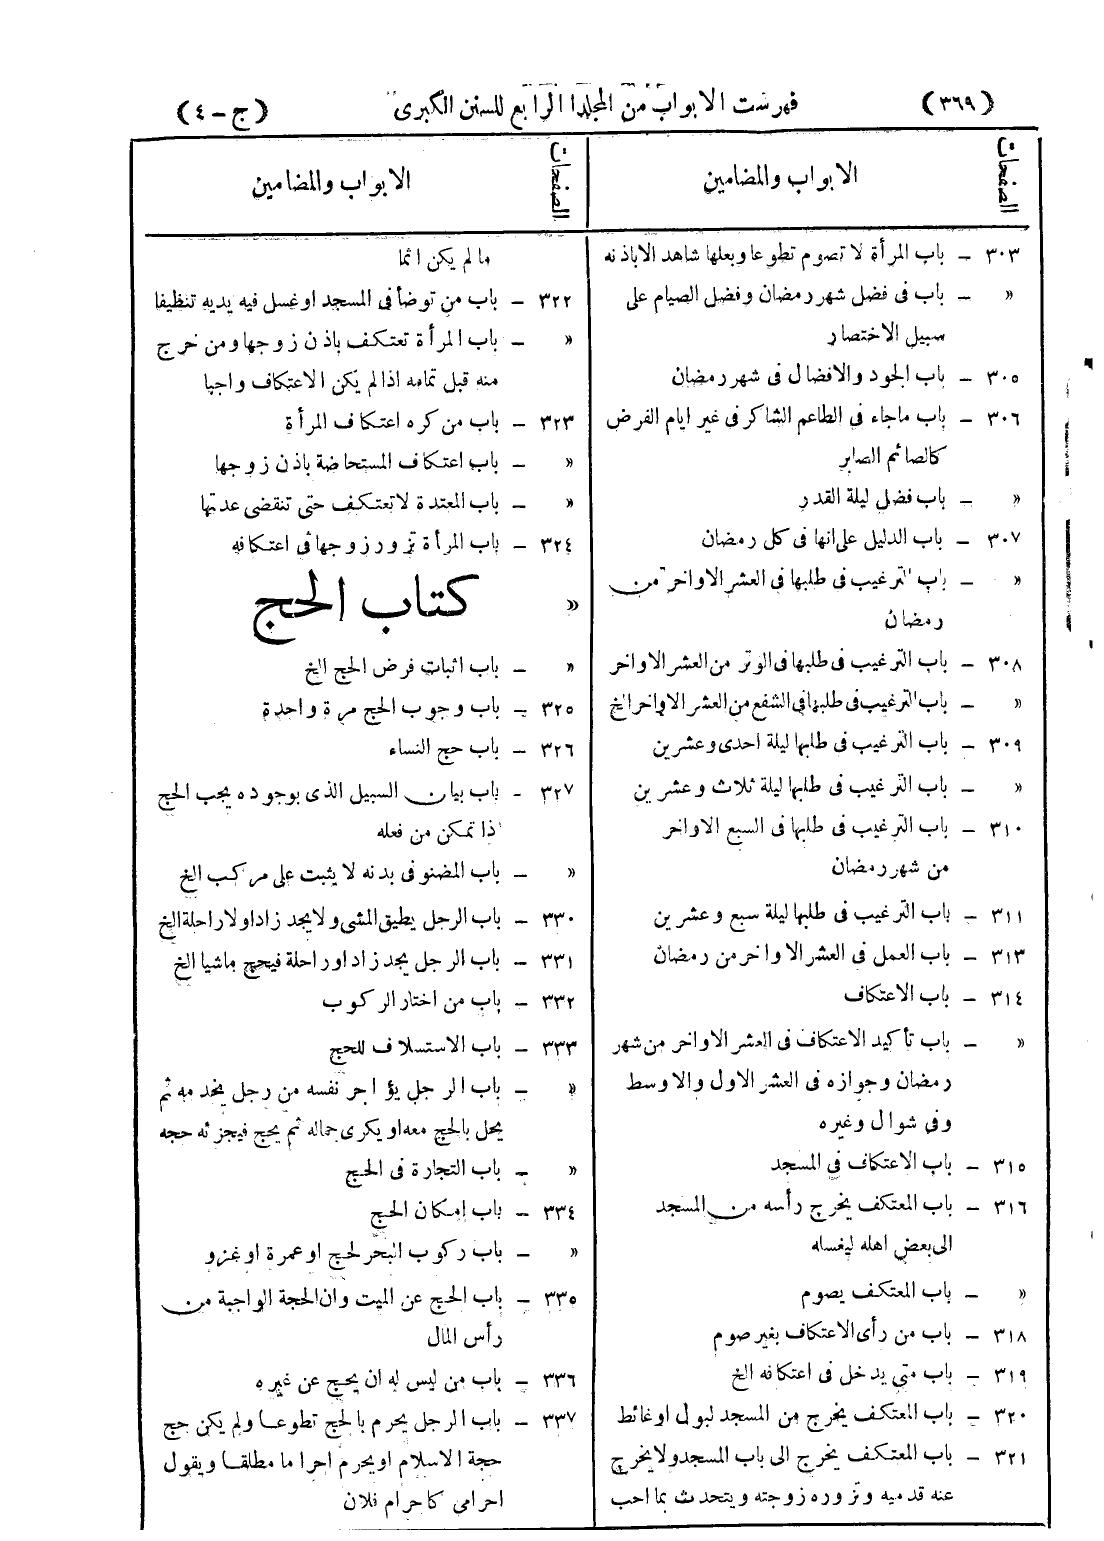 (٣٦٩) فهرست الابواب من المجلد الرابع للسنن الكبرى (ج - ٤)
الصفحات الابواب والمضامين
٣٠٣ - باب المرأة لا تصوم تطوعا وبعلها شاهد الاباذنه
« - باب فى فضل شهر رمضان وفضل الصيام على
سبيل الاختصار
٣٠٥ - باب الجود والافضال فى شهر رمضان
٣٠٦ - باب ماجاء فى الطاعم الشاكر فى غير ايام الفرض
كالصائم الصابر
« - باب فضل ليلة القدر
٣٠٧ - باب الدليل على انها فى كل رمضان
« - باب الترغيب فى طلبها فى العشر الاواخر من
رمضان
٣٠٨ - باب الترغيب فى طلبها فى الوتر من العشر الاواخر
« - باب الترغيب فى طلبها فى الشفع من العشر الاواخر الخ
٣٠٩ - باب الترغيب فى طلبها ليلة احدى وعشرين
« - باب الترغيب فى طلبها ليلة ثلاث وعشرين
٣١٠ - باب الترغيب فى طلبها فى السبع الاواخر
من شهر رمضان
٣١١ - باب الترغيب فى طلبها ليلة سبع وعشرين
٣١٣ - باب العمل فى العشر الاواخر من رمضان
٣١٤ - باب الاعتكاف
« - باب تأكيد الاعتكاف فى العشر الاواخر من شهر
رمضان وجوازه فى العشر الاول والاوسط
وفى شوال وغيره
٣١٥ - باب الاعتكاف فى المسجد
٣١٦ - باب المعتكف يخرج رأسه من المسجد
الى بعض اهله ليغسله
« - باب المعتكف يصوم
٣١٨ - باب من رأى الاعتكاف بغير صوم
٣١٩ - باب متى يدخل فى اعتكافه الخ
٣٢٠ - باب المعتكف يخرج من المسجد لبول اوغائط
٣٢١ - باب المعتكف يخرج الى باب المسجد ولايخرج
عنه قدميه وتزوره زوجته ويتحدث بما احب
الصفحات الابواب والمضامين
مالم يكن اثما
٣٢٢ - باب من توضأ فى المسجد اوغسل فيه يديه تنظيفا
« - باب المرأة تعتكف باذن زوجها ومن خرج
منه قبل تمامه اذالم يكن الاعتكاف واجبا
٣٢٣ - باب من كره اعتكاف المرأة
« - باب اعتكاف المستحاضة باذن زوجها
« - باب المعتدة لاتعتكف حتى تنقضى عدتها
٣٢٤ - باب المرأة تزور زوجها فى اعتكافه
« كتاب الحج
« - باب اثبات فرض الحج الخ
٣٢٥ - باب وجوب الحج مرة واحدة
٣٢٦ - باب حج النساء
٣٢٧ - باب بيان السبيل الذى بوجوده يجب الحج
ذا تمكن من فعله
« - باب المضنو فى بدنه لا يثبت على مركب الخ
٣٣٠ - باب الرجل يطيق المشى ولايجد زادا ولاراحلة الخ
٣٣١ - باب الرجل يجد زادا وراحلة فيحج ماشيا الخ
٣٣٢ - باب من اختار الركوب
٣٣٣ - باب الاستسلاف للحج
« - باب الرجل يؤاجر نفسه من رجل يخدمه ثم
يحل بالحج معه او يكرى جماله ثم يحج فيجزئه حجه
« - باب التجارة فى الحج
٣٣٤ - باب إمكان الحج
« - باب ركوب البحر لحج او عمرة او غزو
٣٣٥ - باب الحج عن الميت وان الحجة الواجبة من
رأس المال
٣٣٦ - باب من ليس له ان يحج عن غيره
٣٣٧ - باب الرجل يحرم بالحج تطوعا ولم يكن حج
حجة الاسلام او يحرم احراما مطلقا ويقول
احرامى كاحرام فلان